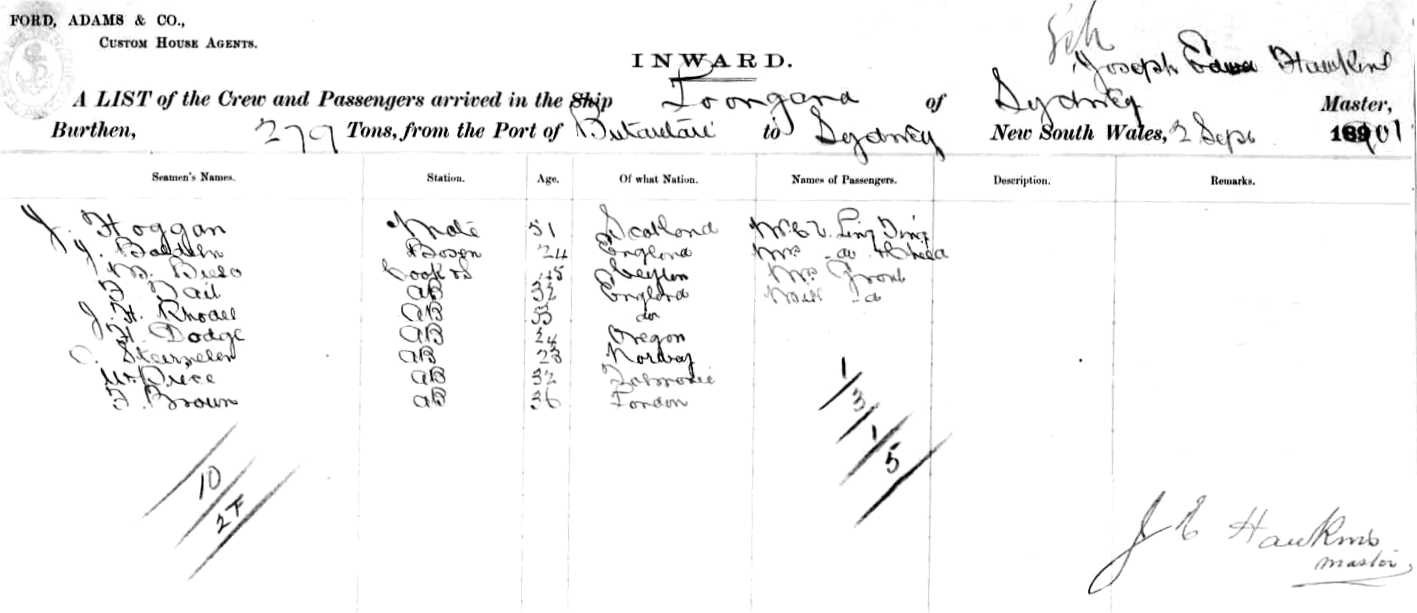 FORD, ADAMS & CO.,
CUSTOM HOUSE AGENTS.
Sch
INWARD.
Joseph Edwd Hawkins
A LIST of the Crew and Passengers arrived in the Ship Loongana of Sydney Master,
Burthen, 279 Tons, from the Port of Butaritari to Sydney New South Wales, 2 Sept 1901
Seamen's Names. Station. Age. Of what Nation. Names of Passengers. Description. Remarks.
J. Hoggan Mate 51 Scotland
Bosen 24 England Mrs do & Child
Cook &S 45 Ceylon Mr
F. Tail AB 32 England Miss do
J. H. Rhodes AB 53 do
H. Dodge AB 24 Oregon
C. AB 23 Norway
Wm Price AB 32
F. Brown AB 36 London
1
3
1
5
10
27
J E Hawkins
Master